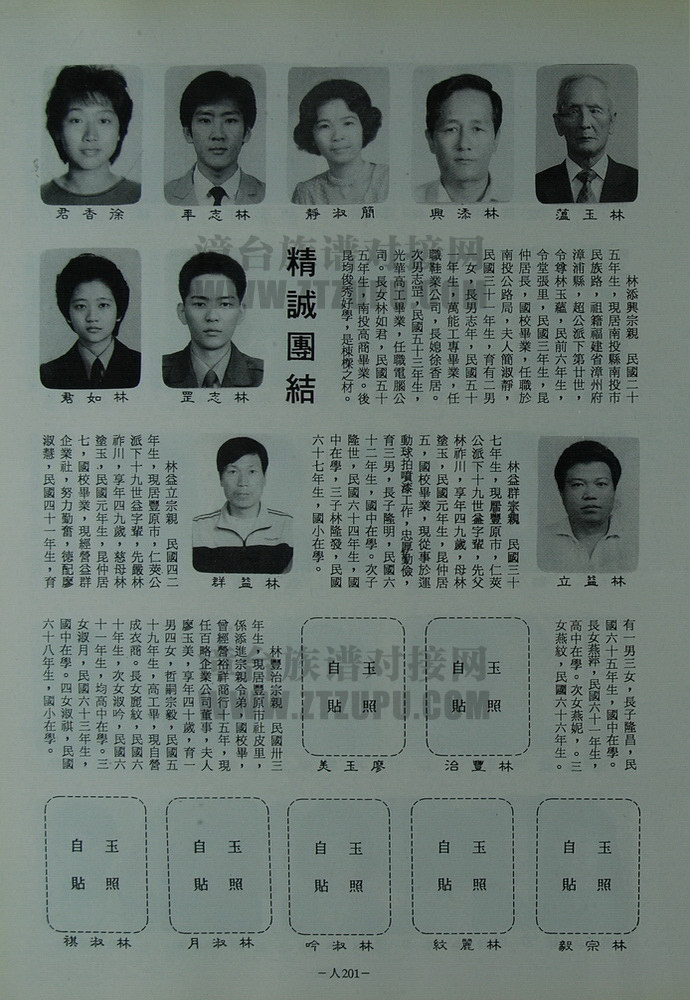 林玉蘊
林添興
簡淑靜
林志年
徐香君
林添興宗親　民國二十
五年生，現居南投縣南投市
民族路，祖籍福建省漳州府
漳浦縣，超公派下第廿世，
令尊林玉蘊，民前六年生，
令堂張里，民國三年生，昆
仲居長，國校畢業，任職於
南投公路局，夫人簡淑靜，
民國三十一年生，育有二男
一女，長男志年，民國五十
一年生，萬能工專畢業，任
職鞋業公司，長媳徐香居。
次男志罡，民國五十三年生，
光華高工畢業，任職電腦公
司。長女林如君，民國五十
五年生，南投高商畢業。後
昆均俊秀好學，是棟樑之材。
精誠團結
林志罡
林如君
林益立
林益群宗親　民國三十
七年生，現居豐原市，仁莢
公派下十九世益字輩，先父
林祚川，享年四九歲，母林
塗玉，民國元年生，昆仲居
五，國校畢業，現從事於運
動球拍噴漆工作，忠厚勤儉，
育三男，長子隆明，民國六
十二年生，國中在學。次子
隆世，民國六十四年生，國
中在學，三子林隆發，民國
六十七年生，國小在學。
林益群
林益立宗親　民國四二
年生，現居豐原市，仁莢公
派下十九世益字輩，先嚴林
祚川，享年四九歲，慈母林
塗玉，民國元年生，昆仲居
七，國校畢業，現經營益群
企業社，努力勤奮，德配廖
淑慧，民國四十一年生，育
有一男三女，長子隆昌，民
國六十五年生，國中在學。
長女燕萍，民國六十一年生，
高中在學。次女燕妮，。三
女燕紋，民國六十六年生。
玉照
自貼
林豐治
玉照
自貼
廖玉美
林豐治宗親　民國卅三
年生，現居豐原市社皮里，
係添進宗親令弟，國校畢，
曾經營裕祥商行十五年，現
任百略企業公司董事，夫人
廖玉美，享年四十歲，育一
男四女，哲嗣宗毅，民國五
十九年生，高工畢，現自營
成衣商。長女麗紋，民國六
十年生，次女淑吟，民國六
十一年生，均高中在學。三
女淑月，民國六十三年生，
國中在學。四女淑祺，民國
六十八年生，國小在學。
玉照
自貼
林宗毅
玉照
自貼
林麗紋
玉照
自貼
林淑吟
玉照
自貼
林淑月
玉照
自貼
林淑祺
－人201－
漳台族谱对接网
WWW.ZTZUPU.COM
漳台族谱对接网
WWW.ZTZUPU.COM